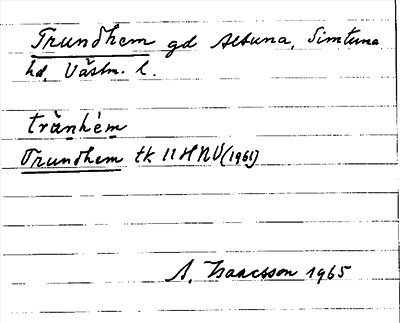 Trundhem gd Altuna, Simtuna
hd, Västm. l.
trànhém
Trundhem tk 11 H NV (1961)
A. Isaacsson 1965